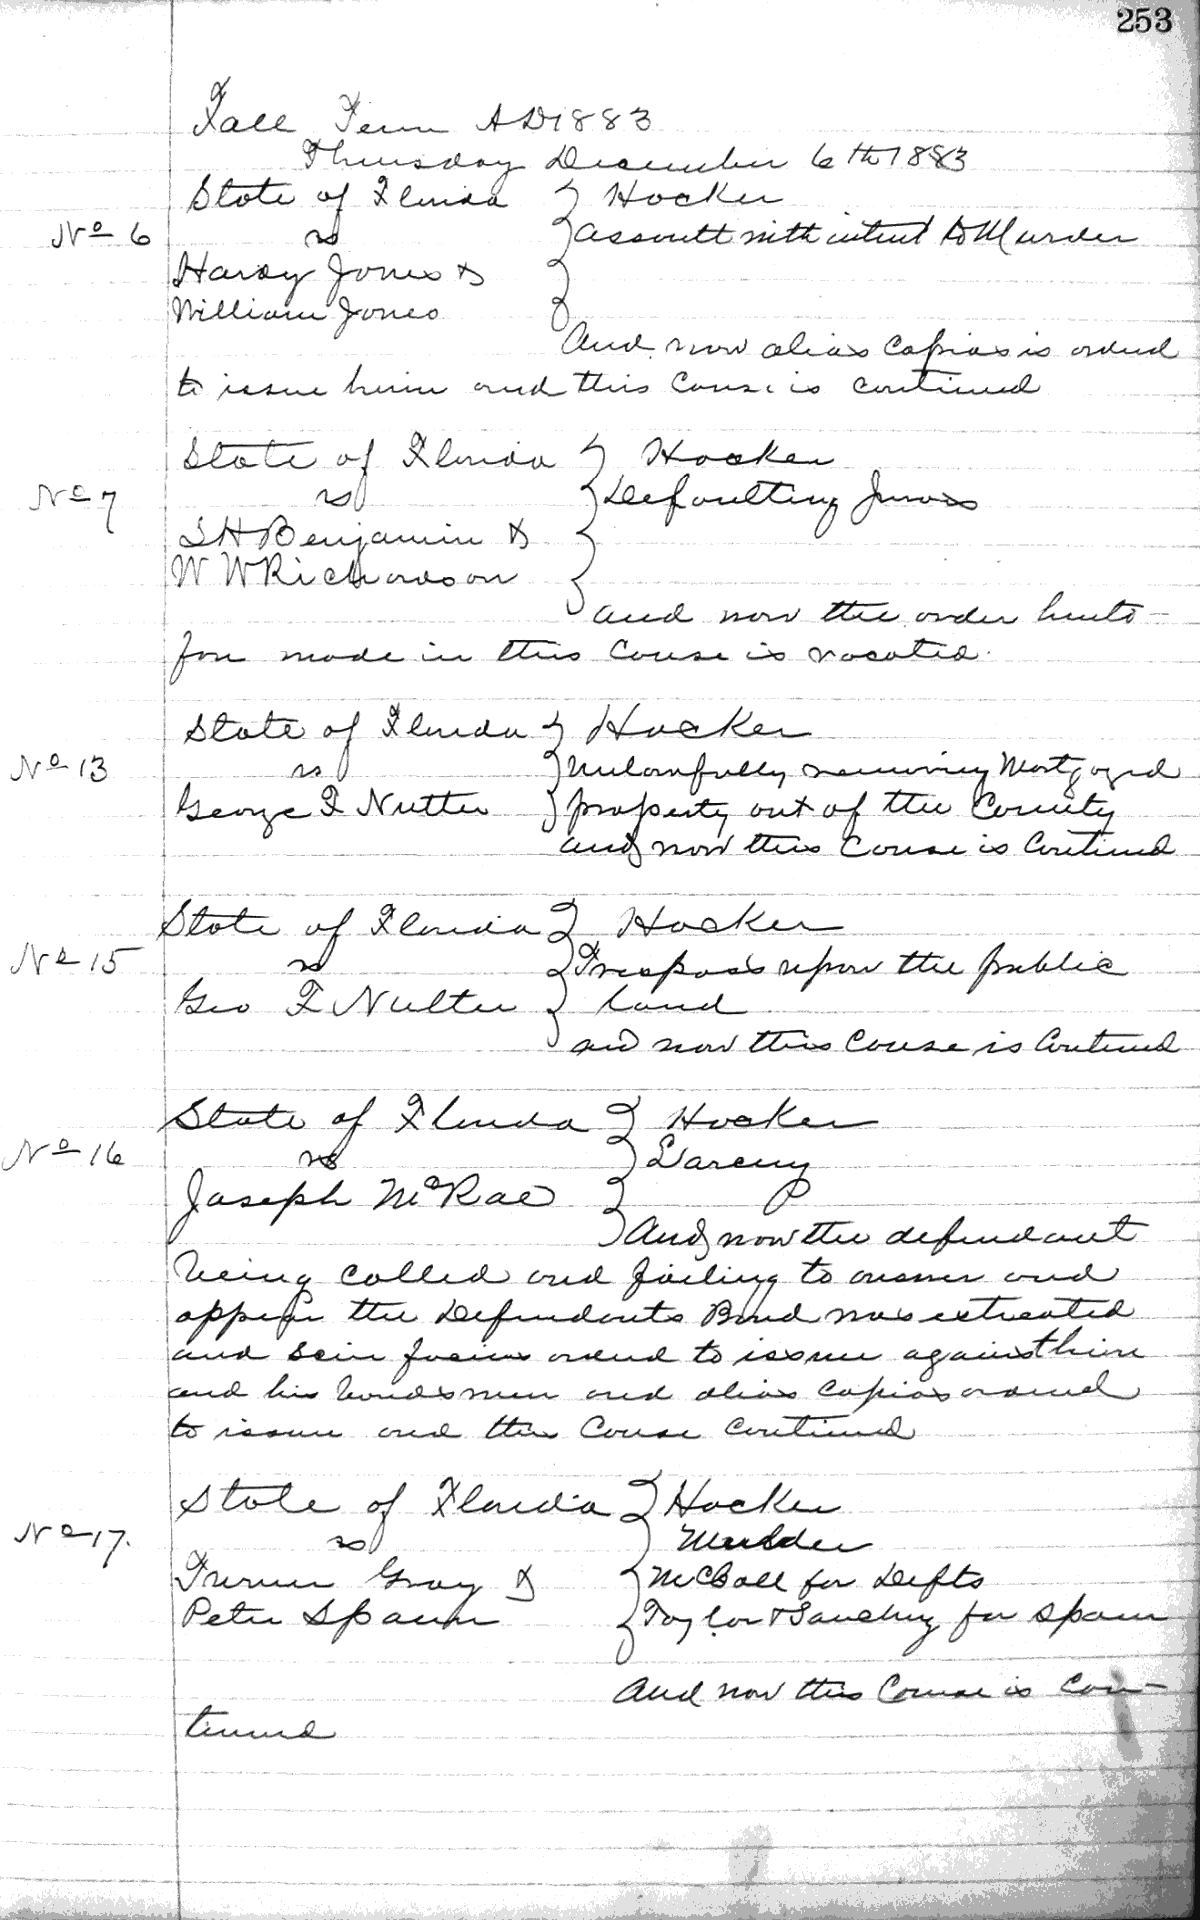 253
Fall Term AD 1883
Thursday December 6th 1883
State of Florida } Hocker
No 6 vs } assault with intent to Murder
Harvy Jones &
William Jones
And now alias Capias is ordered
to issue herein and this Cause is continued
State of Florida } Hocker
No 7 vs } Defaulting Jurors
S H Benjamin &
W W Richardson
and now the order hereto-
fore made in this Cause is vacated.
State of Florida } Hocker
No 13 vs } Unlawfully removing Mortgaged
George F Nutter } property out of the County
and now this Cause is Continued
State of Florida } Hocker
No 15 vs } Trespass upon the public
Geo F Nutter } land
and now this Cause is Continued
State of Florida } Hocker
No 16 vs } Larceny
Joseph McRae
And now the defendant
being called and failing to answer and
appear the Defendants Bond was estreated
and Scire facias ordered to issue against him
and his bondsmen and alias Capias ordered
to issue and this Cause Continued
State of Florida } Hocker
No 17. vs } Murder
Turner Gray & } McCall for Defts
Peter Spann } Taylor & Sanchez for Spann
And now this Cause is Con-
tinued